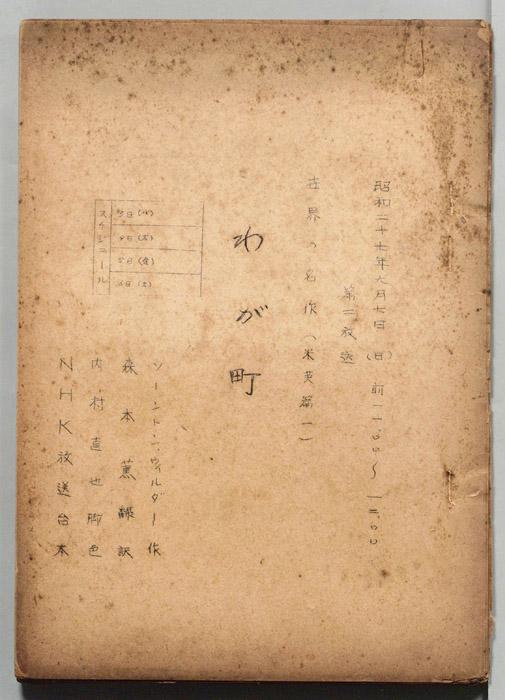 昭和二十七年九月七日(日) 前一一.〇〇～一二.〇〇
第二放送
世界の名作(米英篇一)
わが町
3日(水)
4日(木)
5日(金)
6日(土)
スケジュール
ソーントン、ウィルダー作
森本薫飜訳
内村直也脚色
NHK放送台本